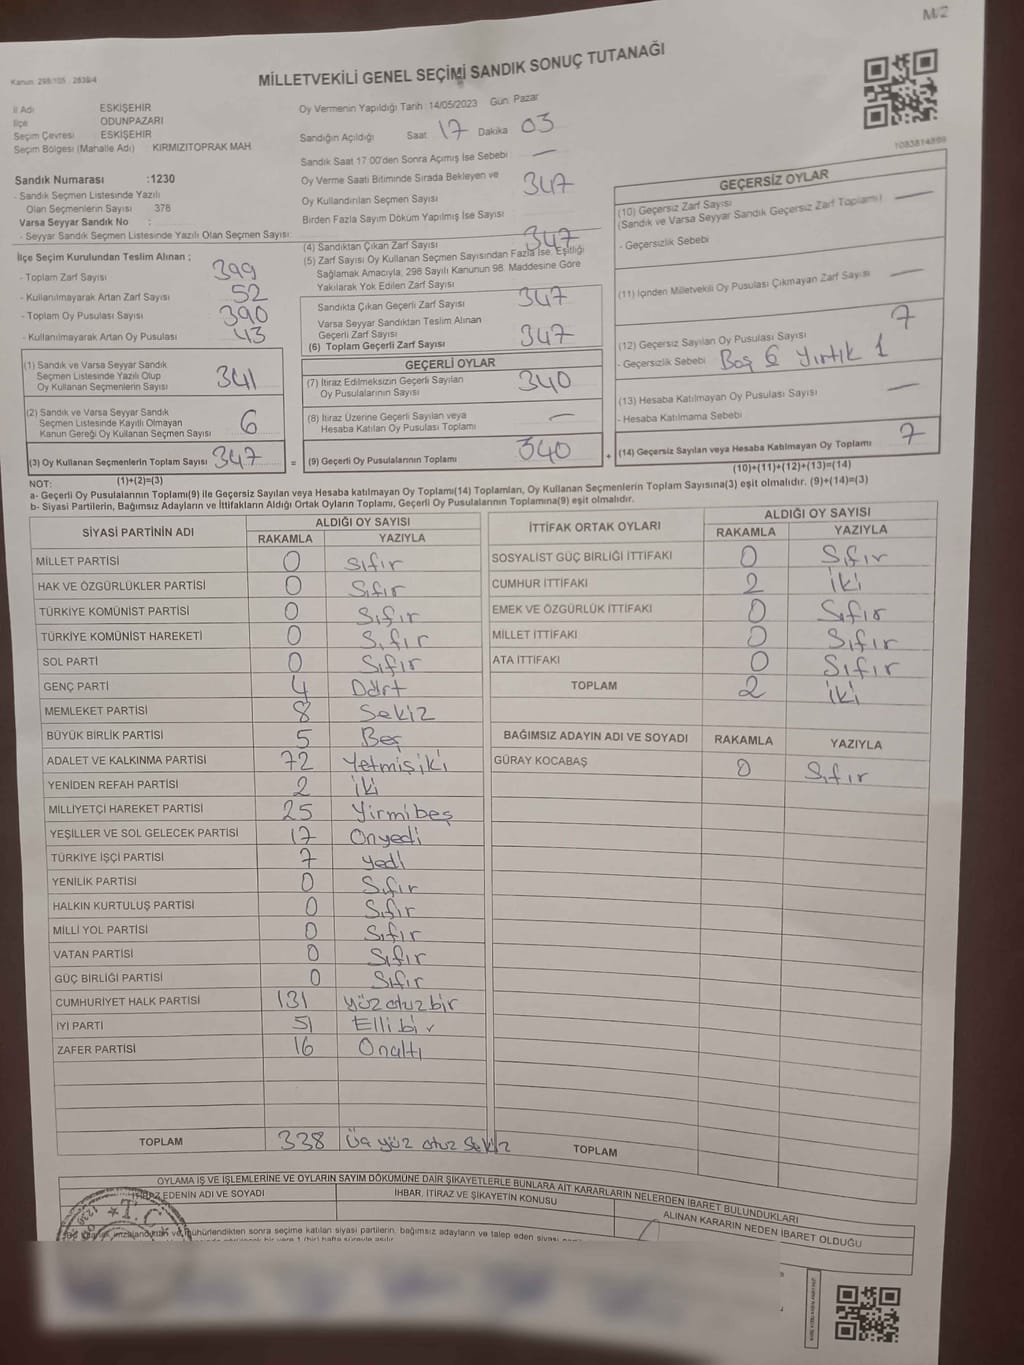 M/2
Kanun: 298/105 : 2839/4
MİLLETVEKİLİ GENEL SEÇİMİ SANDIK SONUÇ TUTANAĞI
İl Adı ESKİŞEHİR
İlçe ODUNPAZARI
Seçim Çevresi ESKİŞEHİR
Seçim Bölgesi (Mahalle Adı) KIRMIZITOPRAK MAH
Sandık Numarası :1230
- Sandık Seçmen Listesinde Yazılı
Olan Seçmenlerin Sayısı 378
Varsa Seyyar Sandık No :
- Seyyar Sandık Seçmen Listesinde Yazılı Olan Seçmen Sayısı:
Oy Vermenin Yapıldığı Tarih :14/05/2023 Gün: Pazar
Sandığın Açıldığı Saat: 17 Dakika 03
Sandık Saat 17 00'den Sonra Açımış İse Sebebi —
Oy Verme Saati Bitiminde Sırada Bekleyen ve
Oy Kullandırılan Seçmen Sayısı 347
Birden Fazla Sayım Döküm Yapılmış İse Sayısı
1083814899
İlçe Seçim Kurulundan Teslim Alınan ;
- Toplam Zarf Sayısı 399
- Kullanılmayarak Artan Zarf Sayısı 52
- Toplam Oy Pusulası Sayısı 390
- Kullanılmayarak Artan Oy Pusulası 43
(1) Sandık ve Varsa Seyyar Sandık
Seçmen Listesinde Yazılı Olup
Oy Kullanan Seçmenlerin Sayısı 341
(2) Sandık ve Varsa Seyyar Sandık
Seçmen Listesinde Kayıtlı Olmayan
Kanun Gereği Oy Kullanan Seçmen Sayısı 6
(3) Oy Kullanan Seçmenlerin Toplam Sayısı 347 =
(1)+(2)=(3)
(4) Sandıktan Çıkan Zarf Sayısı 347
(5) Zarf Sayısı Oy Kullanan Seçmen Sayısından Fazla İse, Eşitliği
Sağlamak Amacıyla, 298 Sayılı Kanunun 98. Maddesine Göre
Yakılarak Yok Edilen Zarf Sayısı
Sandıkta Çıkan Geçerli Zarf Sayısı 347
Varsa Seyyar Sandıktan Teslim Alınan
Geçerli Zarf Sayısı
(6) Toplam Geçerli Zarf Sayısı 347
GEÇERLİ OYLAR
(7) İtiraz Edilmeksizin Geçerli Sayılan
Oy Pusulalarının Sayısı 340
(8) İtiraz Üzerine Geçerli Sayılan veya
Hesaba Katılan Oy Pusulası Toplamı —
(9) Geçerli Oy Pusulalarının Toplamı 340 +
GEÇERSİZ OYLAR
(10) Geçersiz Zarf Sayısı
(Sandık ve Varsa Seyyar Sandık Geçersiz Zarf Toplamı) —
- Geçersizlik Sebebi
(11) İçinden Milletvekili Oy Pusulası Çıkmayan Zarf Sayısı —
(12) Geçersiz Sayılan Oy Pusulası Sayısı 7
- Geçersizlik Sebebi Boş 6 Yırtık 1
(13) Hesaba Katılmayan Oy Pusulası Sayısı —
- Hesaba Katılmama Sebebi
(14) Geçersiz Sayılan veya Hesaba Katılmayan Oy Toplamı 7
(10)+(11)+(12)+(13)=(14)
NOT:
a- Geçerli Oy Pusulalarının Toplamı(9) ile Geçersiz Sayılan veya Hesaba katılmayan Oy Toplamı(14) Toplamları, Oy Kullanan Seçmenlerin Toplam Sayısına(3) eşit olmalıdır. (9)+(14)=(3)
b- Siyasi Partilerin, Bağımsız Adayların ve İttifakların Aldığı Ortak Oyların Toplamı, Geçerli Oy Pusulalarının Toplamına(9) eşit olmalıdır.
SİYASİ PARTİNİN ADI ALDIĞI OY SAYISI
RAKAMLA YAZIYLA
MİLLET PARTİSİ 0 Sıfır
HAK VE ÖZGÜRLÜKLER PARTİSİ 0 Sıfır
TÜRKİYE KOMÜNİST PARTİSİ 0 Sıfır
TÜRKİYE KOMÜNİST HAREKETİ 0 Sıfır
SOL PARTİ 0 Sıfır
GENÇ PARTİ 4 Dört
MEMLEKET PARTİSİ 8 Sekiz
BÜYÜK BİRLİK PARTİSİ 5 Beş
ADALET VE KALKINMA PARTİSİ 72 Yetmişiki
YENİDEN REFAH PARTİSİ 2 iki
MİLLİYETÇİ HAREKET PARTİSİ 25 Yirmibeş
YEŞİLLER VE SOL GELECEK PARTİSİ 17 Onyedi
TÜRKİYE İŞÇİ PARTİSİ 7 yedi
YENİLİK PARTİSİ 0 Sıfır
HALKIN KURTULUŞ PARTİSİ 0 Sıfır
MİLLİ YOL PARTİSİ 0 Sıfır
VATAN PARTİSİ 0 Sıfır
GÜÇ BİRLİĞİ PARTİSİ 0 Sıfır
CUMHURİYET HALK PARTİSİ 131 yüz otuz bir
İYİ PARTİ 51 Elli bir
ZAFER PARTİSİ 16 Onaltı
TOPLAM 338 Üç yüz otuz Sekiz
İTTİFAK ORTAK OYLARI ALDIĞI OY SAYISI
RAKAMLA YAZIYLA
SOSYALİST GÜÇ BİRLİĞİ İTTİFAKI 0 Sıfır
CUMHUR İTTİFAKI 2 iki
EMEK VE ÖZGÜRLÜK İTTİFAKI 0 Sıfır
MİLLET İTTİFAKI 0 Sıfır
ATA İTTİFAKI 0 Sıfır
TOPLAM 2 iki
BAĞIMSIZ ADAYIN ADI VE SOYADI RAKAMLA YAZIYLA
GÜRAY KOCABAŞ 0 Sıfır
TOPLAM
OYLAMA İŞ VE İŞLEMLERİNE VE OYLARIN SAYIM DÖKÜMÜNE DAİR ŞİKAYETLERLE BUNLARA AİT KARARLARIN NELERDEN İBARET BULUNDUKLARI
EDENİN ADI VE SOYADI İHBAR, İTİRAZ VE ŞİKAYETİN KONUSU ALINAN KARARIN NEDEN İBARET OLDUĞU
T.C.
1230
mühürlendikten sonra seçime katılan siyasi partilerin, bağımsız adayların ve talep eden